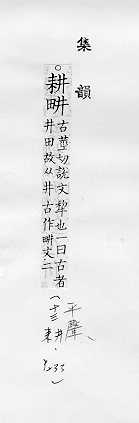 集韻
○耕畊
古莖切說文犂也一曰古者
井田故从井古作畊文二
(平聲、
十三耕・